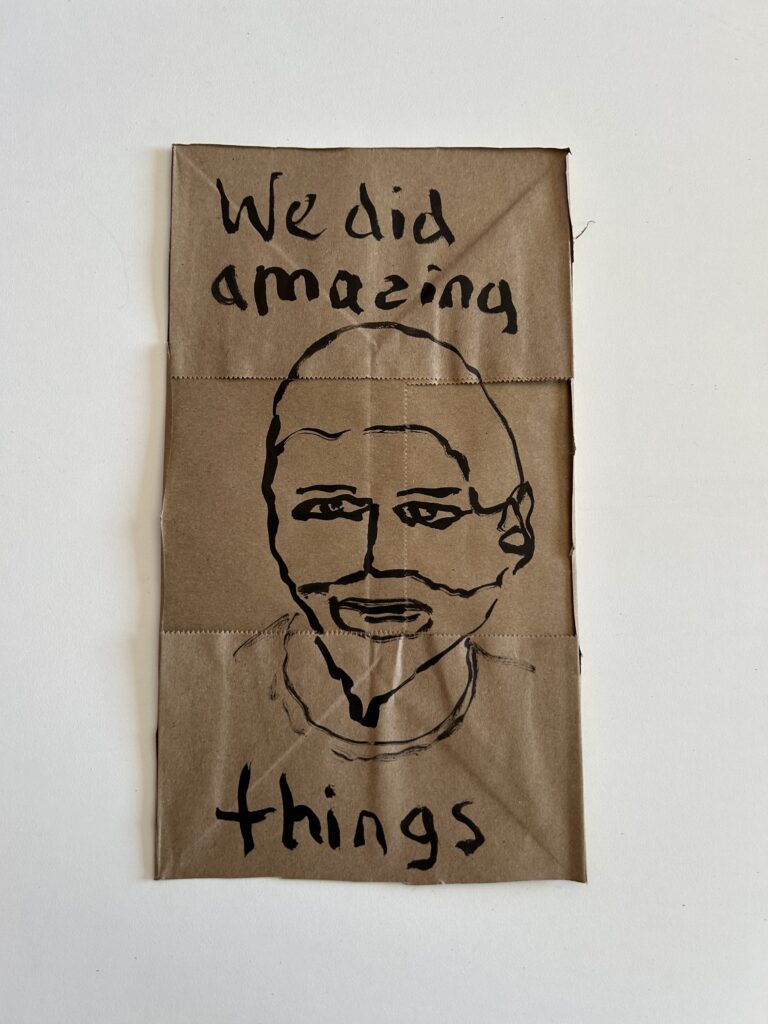 We did
amazing
things